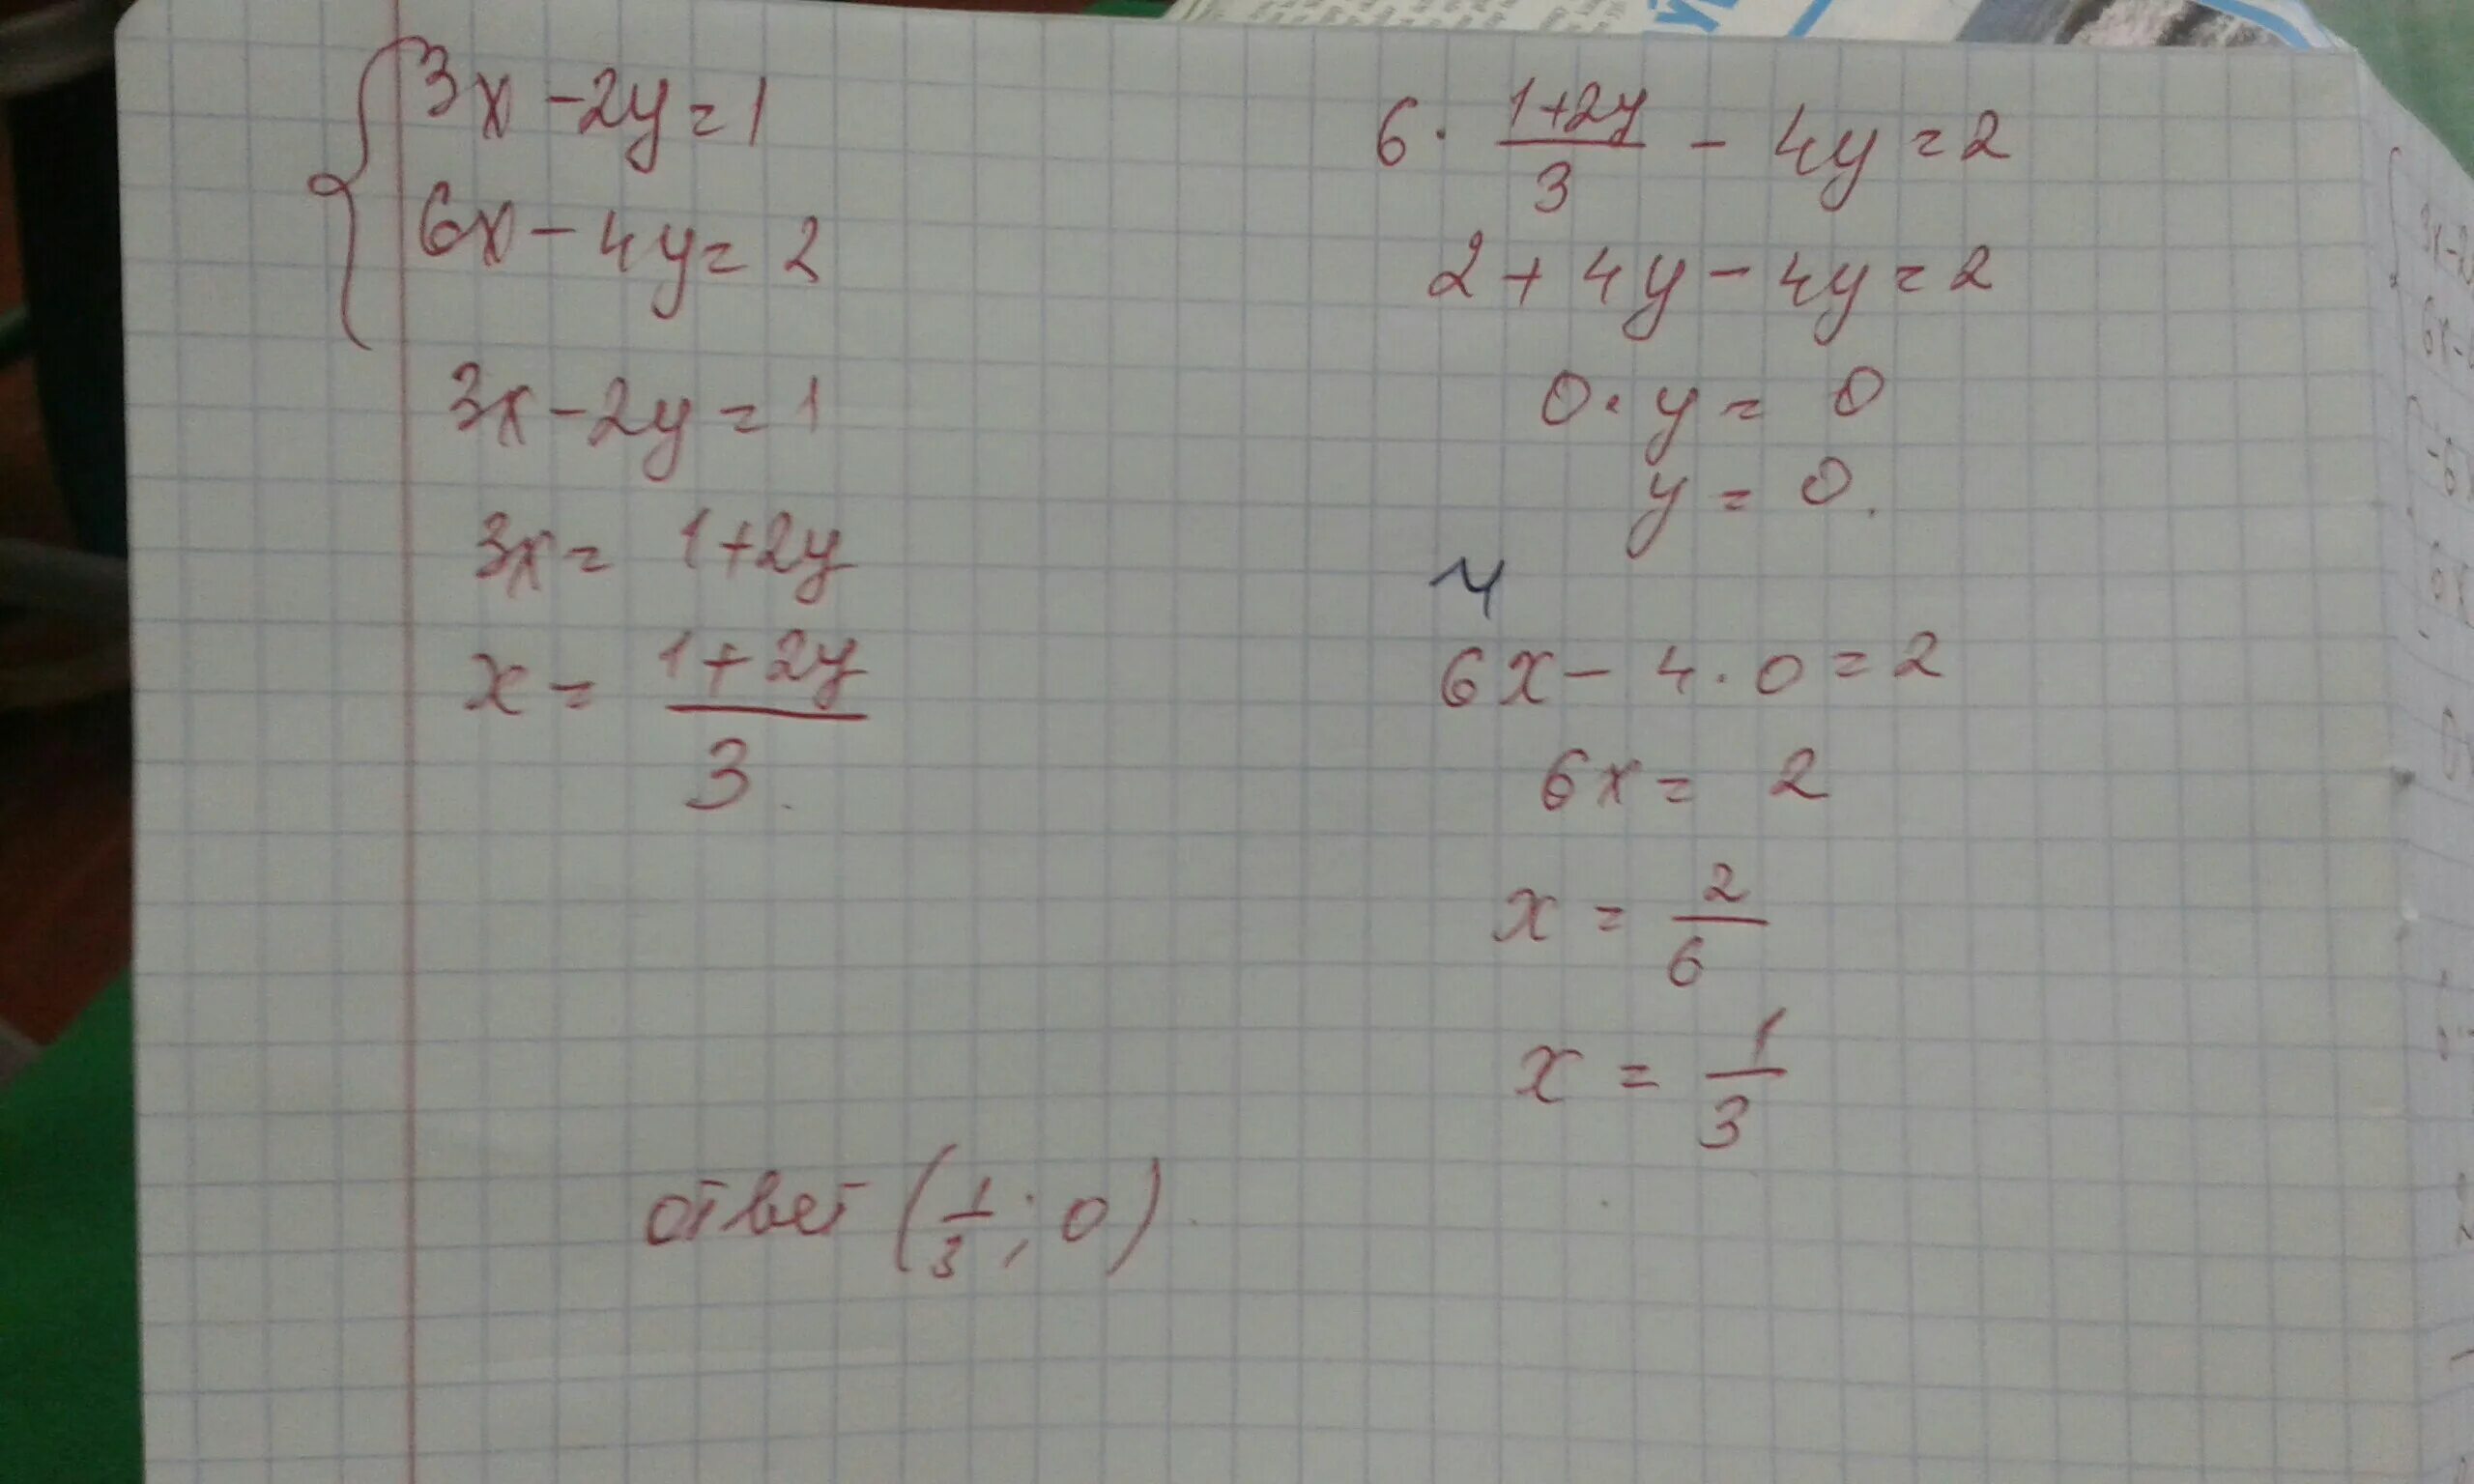 3x - 2y = 1
6x - 4y = 2
3x - 2y = 1
3x = 1+2y
x = \frac{1+2y}{3}
6 · \frac{1+2y}{3} - 4y = 2
2 + 4y - 4y = 2
0 · y = 0
y = 0.
6x - 4 · 0 = 2
6x = 2
x = \frac{2}{6}
x = \frac{1}{3}
ответ (\frac{1}{3}; 0)